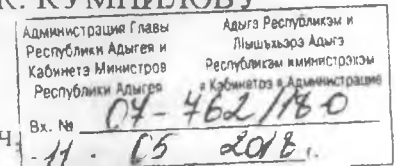 К. КУМПИЛОВУ
Администрация Главы
Республики Адыгея и
Кабинета Министров
Республики Адыгея
Адыгэ Республикэм и
Лӏышъхьэрэ Адыгэ
Республикэм иминистрэхэм
я Кабинетрэ я Администрацие
ч.
Вх. № 04-762/180
11. 05 2018 г.